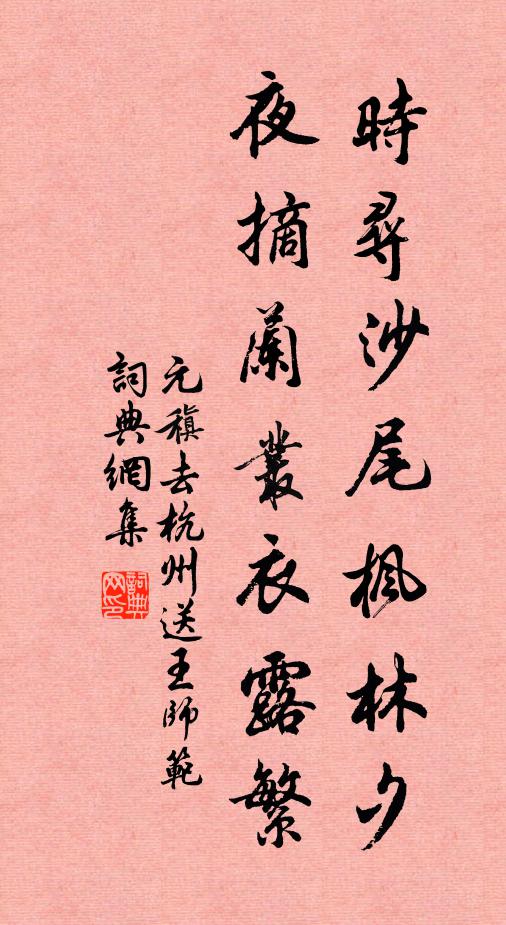 時尋沙尾楓林夕
夜摘蘭叢衣露繁
元稹去杭州送王師範
詞典網集
詞典网印